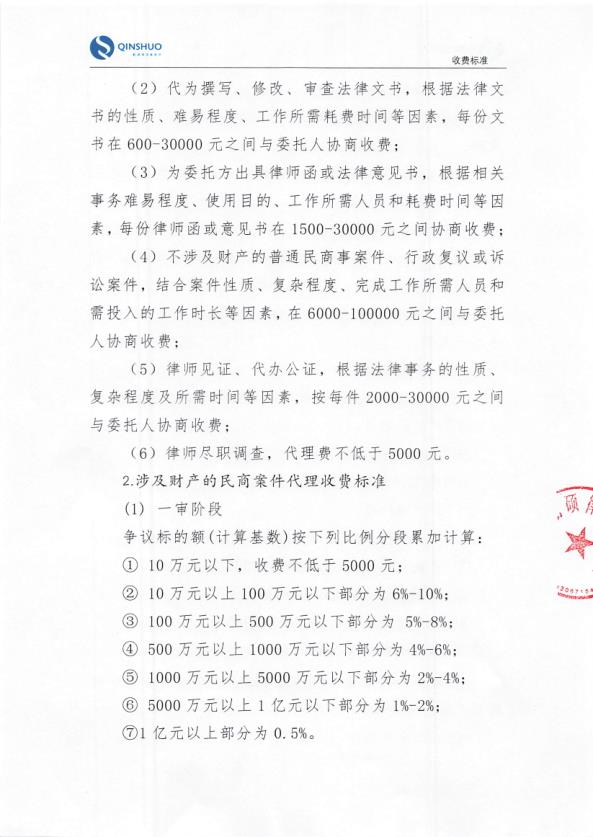 QINSHUO
收费标准
（2）代为撰写、修改、审查法律文书，根据法律文
书的性质、难易程度、工作所需耗费时间等因素，每份文
书在 600-30000 元之间与委托人协商收费；
（3）为委托方出具律师函或法律意见书，根据相关
事务难易程度、使用目的、工作所需人员和耗费时间等因
素，每份律师函或意见书在 1500-30000 元之间协商收费；
（4）不涉及财产的普通民商事案件、行政复议或诉
讼案件，结合案件性质、复杂程度、完成工作所需人员和
需投入的工作时长等因素，在 6000-100000 元之间与委托
人协商收费；
（5）律师见证、代办公证，根据法律事务的性质、
复杂程度及所需时间等因素，按每件 2000-30000 元之间
与委托人协商收费；
（6）律师尽职调查，代理费不低于 5000 元。
2.涉及财产的民商案件代理收费标准
(1) 一审阶段
争议标的额(计算基数)按下列比例分段累加计算：
① 10 万元以下，收费不低于 5000 元；
② 10 万元以上 100 万元以下部分为 6%-10%；
③ 100 万元以上 500 万元以下部分为 5%-8%；
④ 500 万元以上 1000 万元以下部分为 4%-6%；
⑤ 1000 万元以上 5000 万元以下部分为 2%-4%；
⑥ 5000 万元以上 1 亿元以下部分为 1%-2%；
⑦1 亿元以上部分为 0.5%。